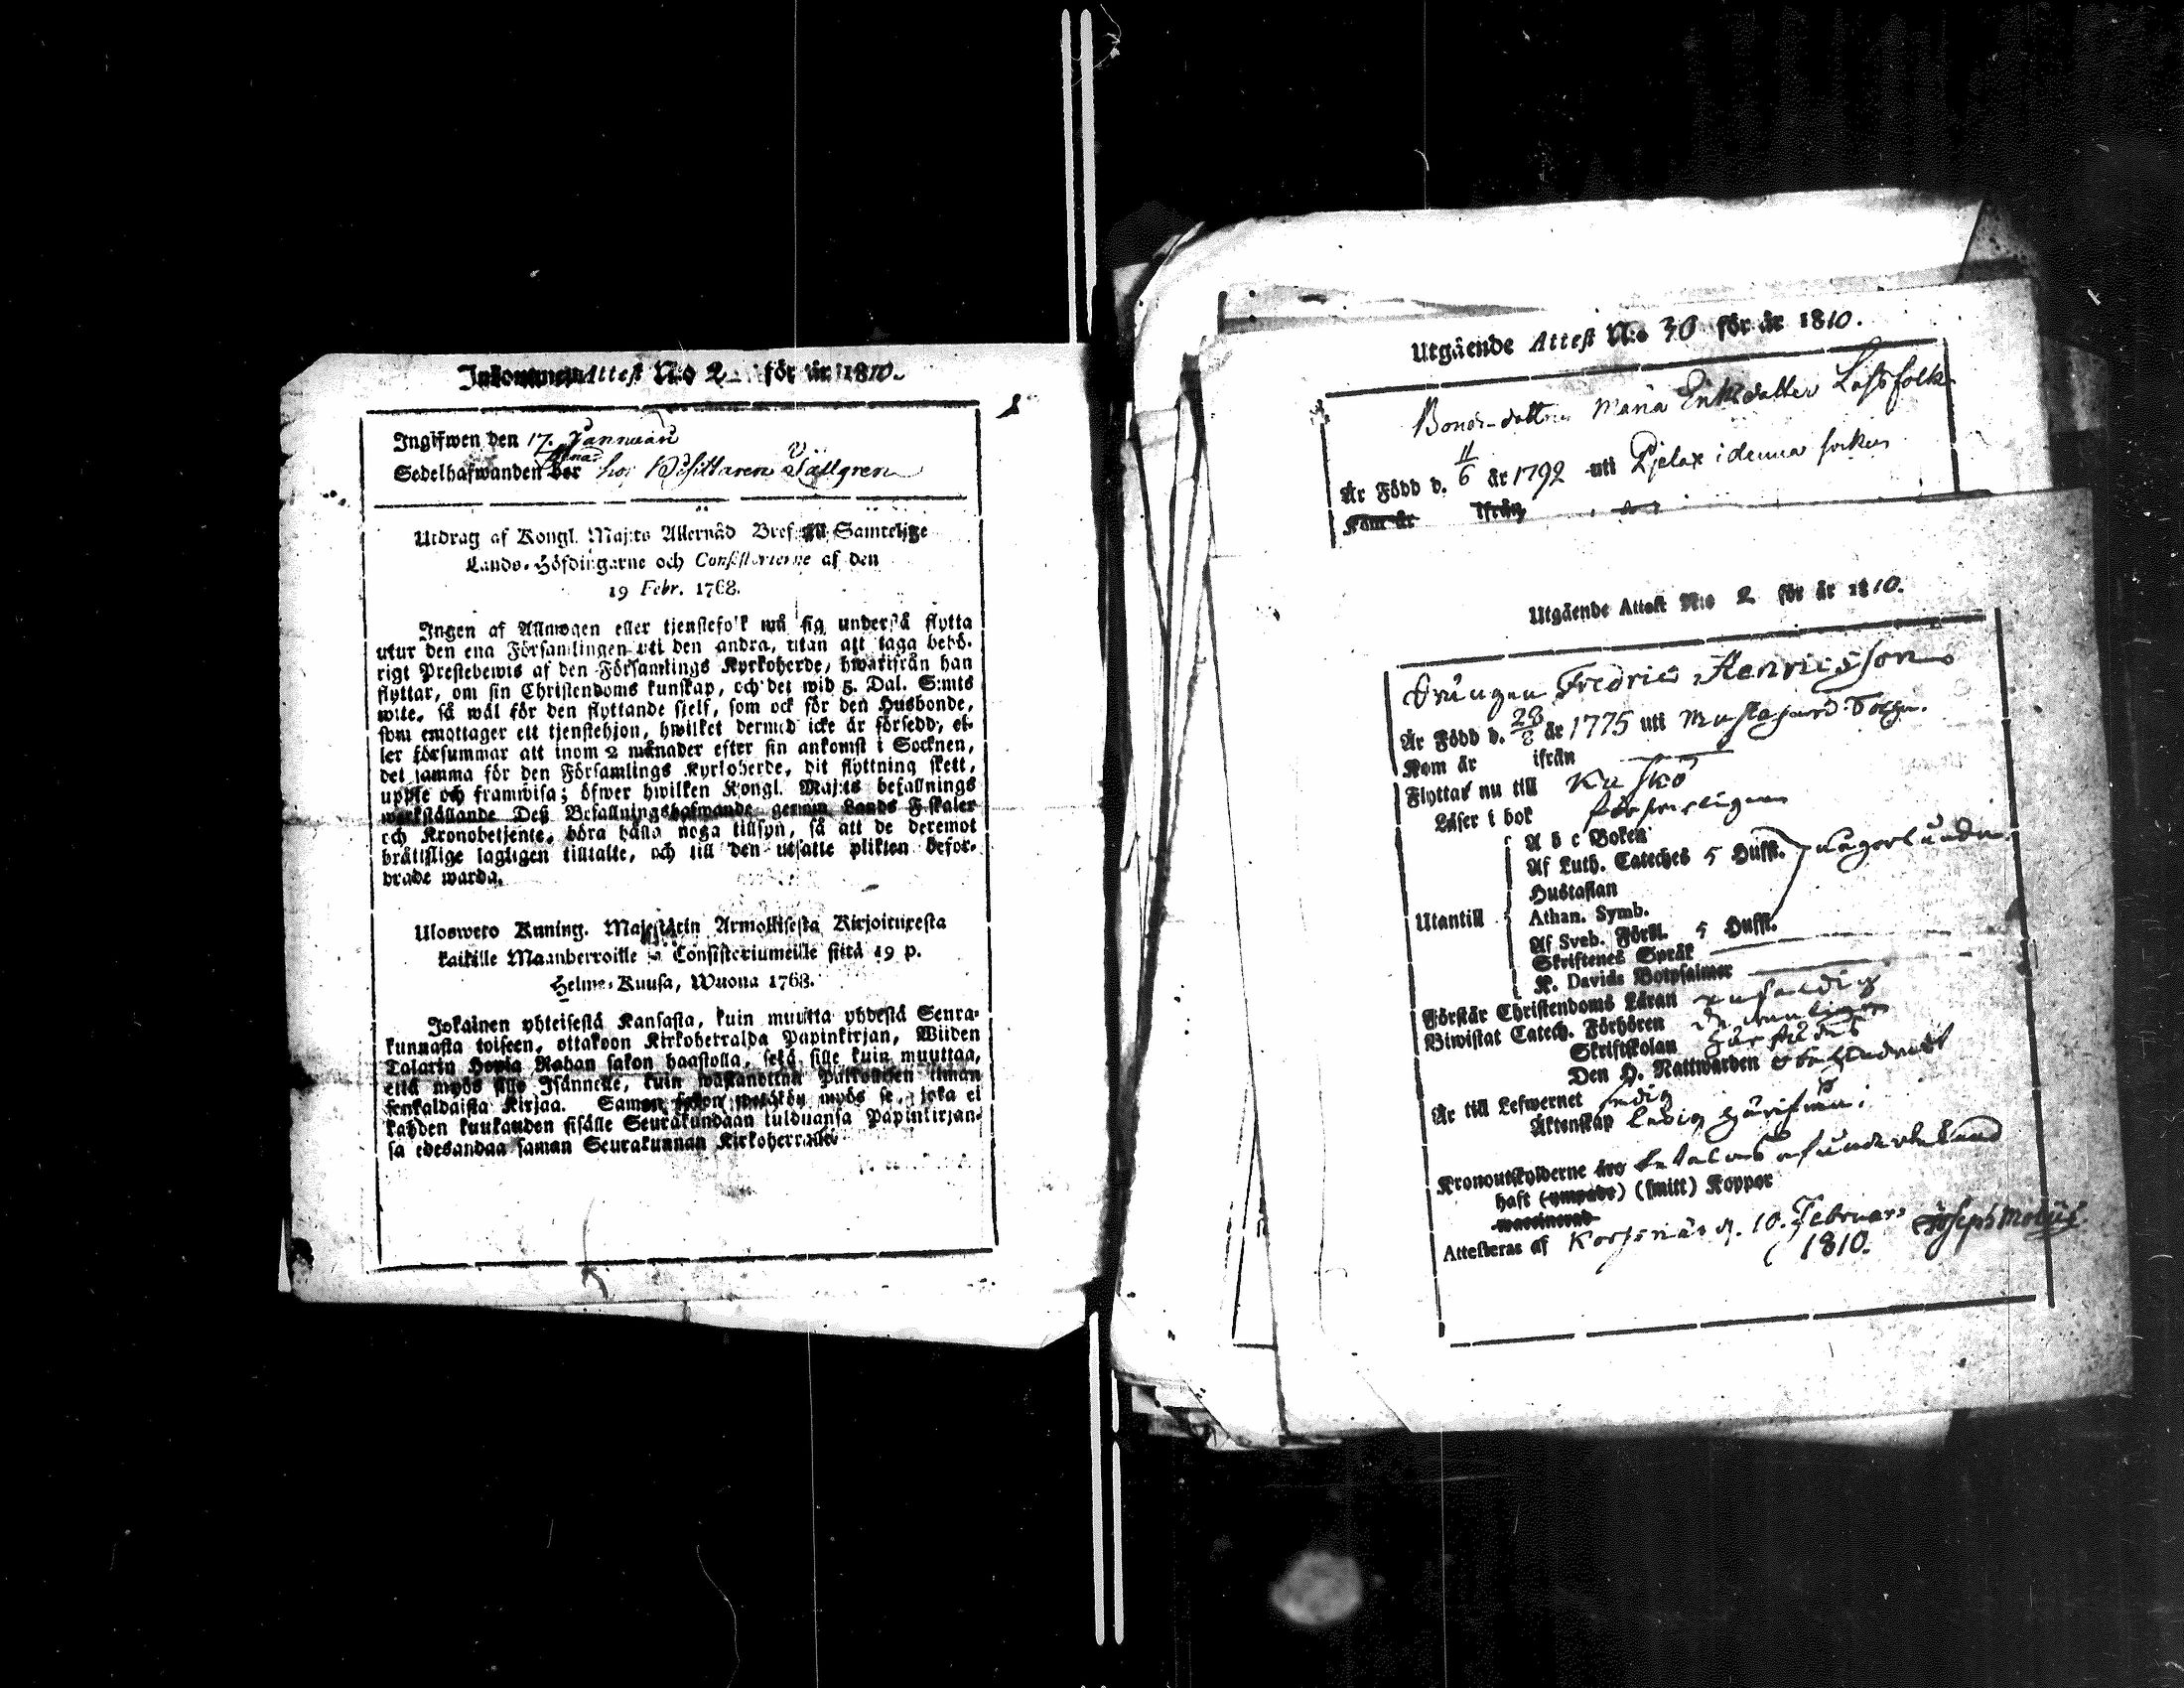 Inkommen Attest N:o 2 för år 1810.
Ingifwen den 17. Januari
Sedelhafwanden hos Tällgren
Utdrag af Kongl. Maj:ts Allernåd Bref till Samtelige
Lands-Höfdingarne och Consistorierne af den
19 Febr. 1768.
Ingen af Allmogen eller tjenstefolk må sig understå flytta
utur den ena Församlingen uti den andra, utan att taga behö-
rigt Prestebewis af den Församlings Kyrkoherde, hwarifrån han
flyttar, om sin Christendoms kunskap, och det wid 5. Dal. S:mts
wite, så wäl för den flyttande sjelf, som ock för den Husbonde,
som emottager ett tjenstehjon, hwilket dermed icke är försedd, el-
ler försummar att inom 2 månader efter sin ankomst i Socknen,
det samma för den Församlings Kyrkoherde, dit flyttning skett,
uppte och framwisa; öfwer hwilken Kongl. Maj:ts befallnings
werkställande Deß Befallningshafwande genom Lands Fiskaler
och Kronobetjente, böra hålla noga tillsyn, så att de deremot
bråttslige lagligen tilltalte, och till den utsatte plikten befor-
drade warda.
Ulosweto Kuning. Majestätin Armollisesta Kirjoituxesta
kaikille Maanherroille ja Consistoriumeille siitä 19 p.
Helme-Kuusa, Wuona 1768.
Jokainen yhteisestä Kansasta, kuin muutta yhdestä Seura-
kunnasta toiseen, ottakoon Kirkoherralda Papinkirjan, Wiiden
Talarin Hopia Rahan sakon haastolla, sekä sille kuin muuttaa,
että myös sille Isännelle, kuin wastanottaa Palkollisen ilman
senkaldaista Kirjaa. Saman sakon wetäkön myös se, joka ei
kahden kuukauden sisälle Seurakundaan tulduansa Papinkirjan-
sa edesandaa saman Seurakunnan Kirkoherralle
Utgående Attest N:o 30 för år 1810.
Bonde-dottren Maria Eriksdotter Lassfolk
Är Född d. 11/6 år 1792 uti Pjelax i denna socken
Kom år ifrån
Utgående Attest N:o 2 för år 1810.
Drängen Fredric Henricsson
Är Född d. 28/8 år 1775 uti Mustasaari Sockn.
Kom år ifrån
Flyttar nu till Kuskö
Läser i bok försvarligen
Utantill
A b c Boken
Af Luth. Cateches 5 Hufst. någorlunda
Hustaflan
Athan. Symb.
Af Sveb. Förkl. 5 Hufst.
Skriftenes Språk
K. Davids Botpsalmer
Förstår Christendoms Läran
Biwistat Catech. Förhören
Skriftskolan
Den H. Nattwarden
Är till Lefwernet
Äktenskap ledig härifrån.
Kronoutskylderne äro betalas
haft (ympade) (smitt) Koppor
waccinerad
Attesteras af Korsnäs d. 10. Februari Joseph
1810.